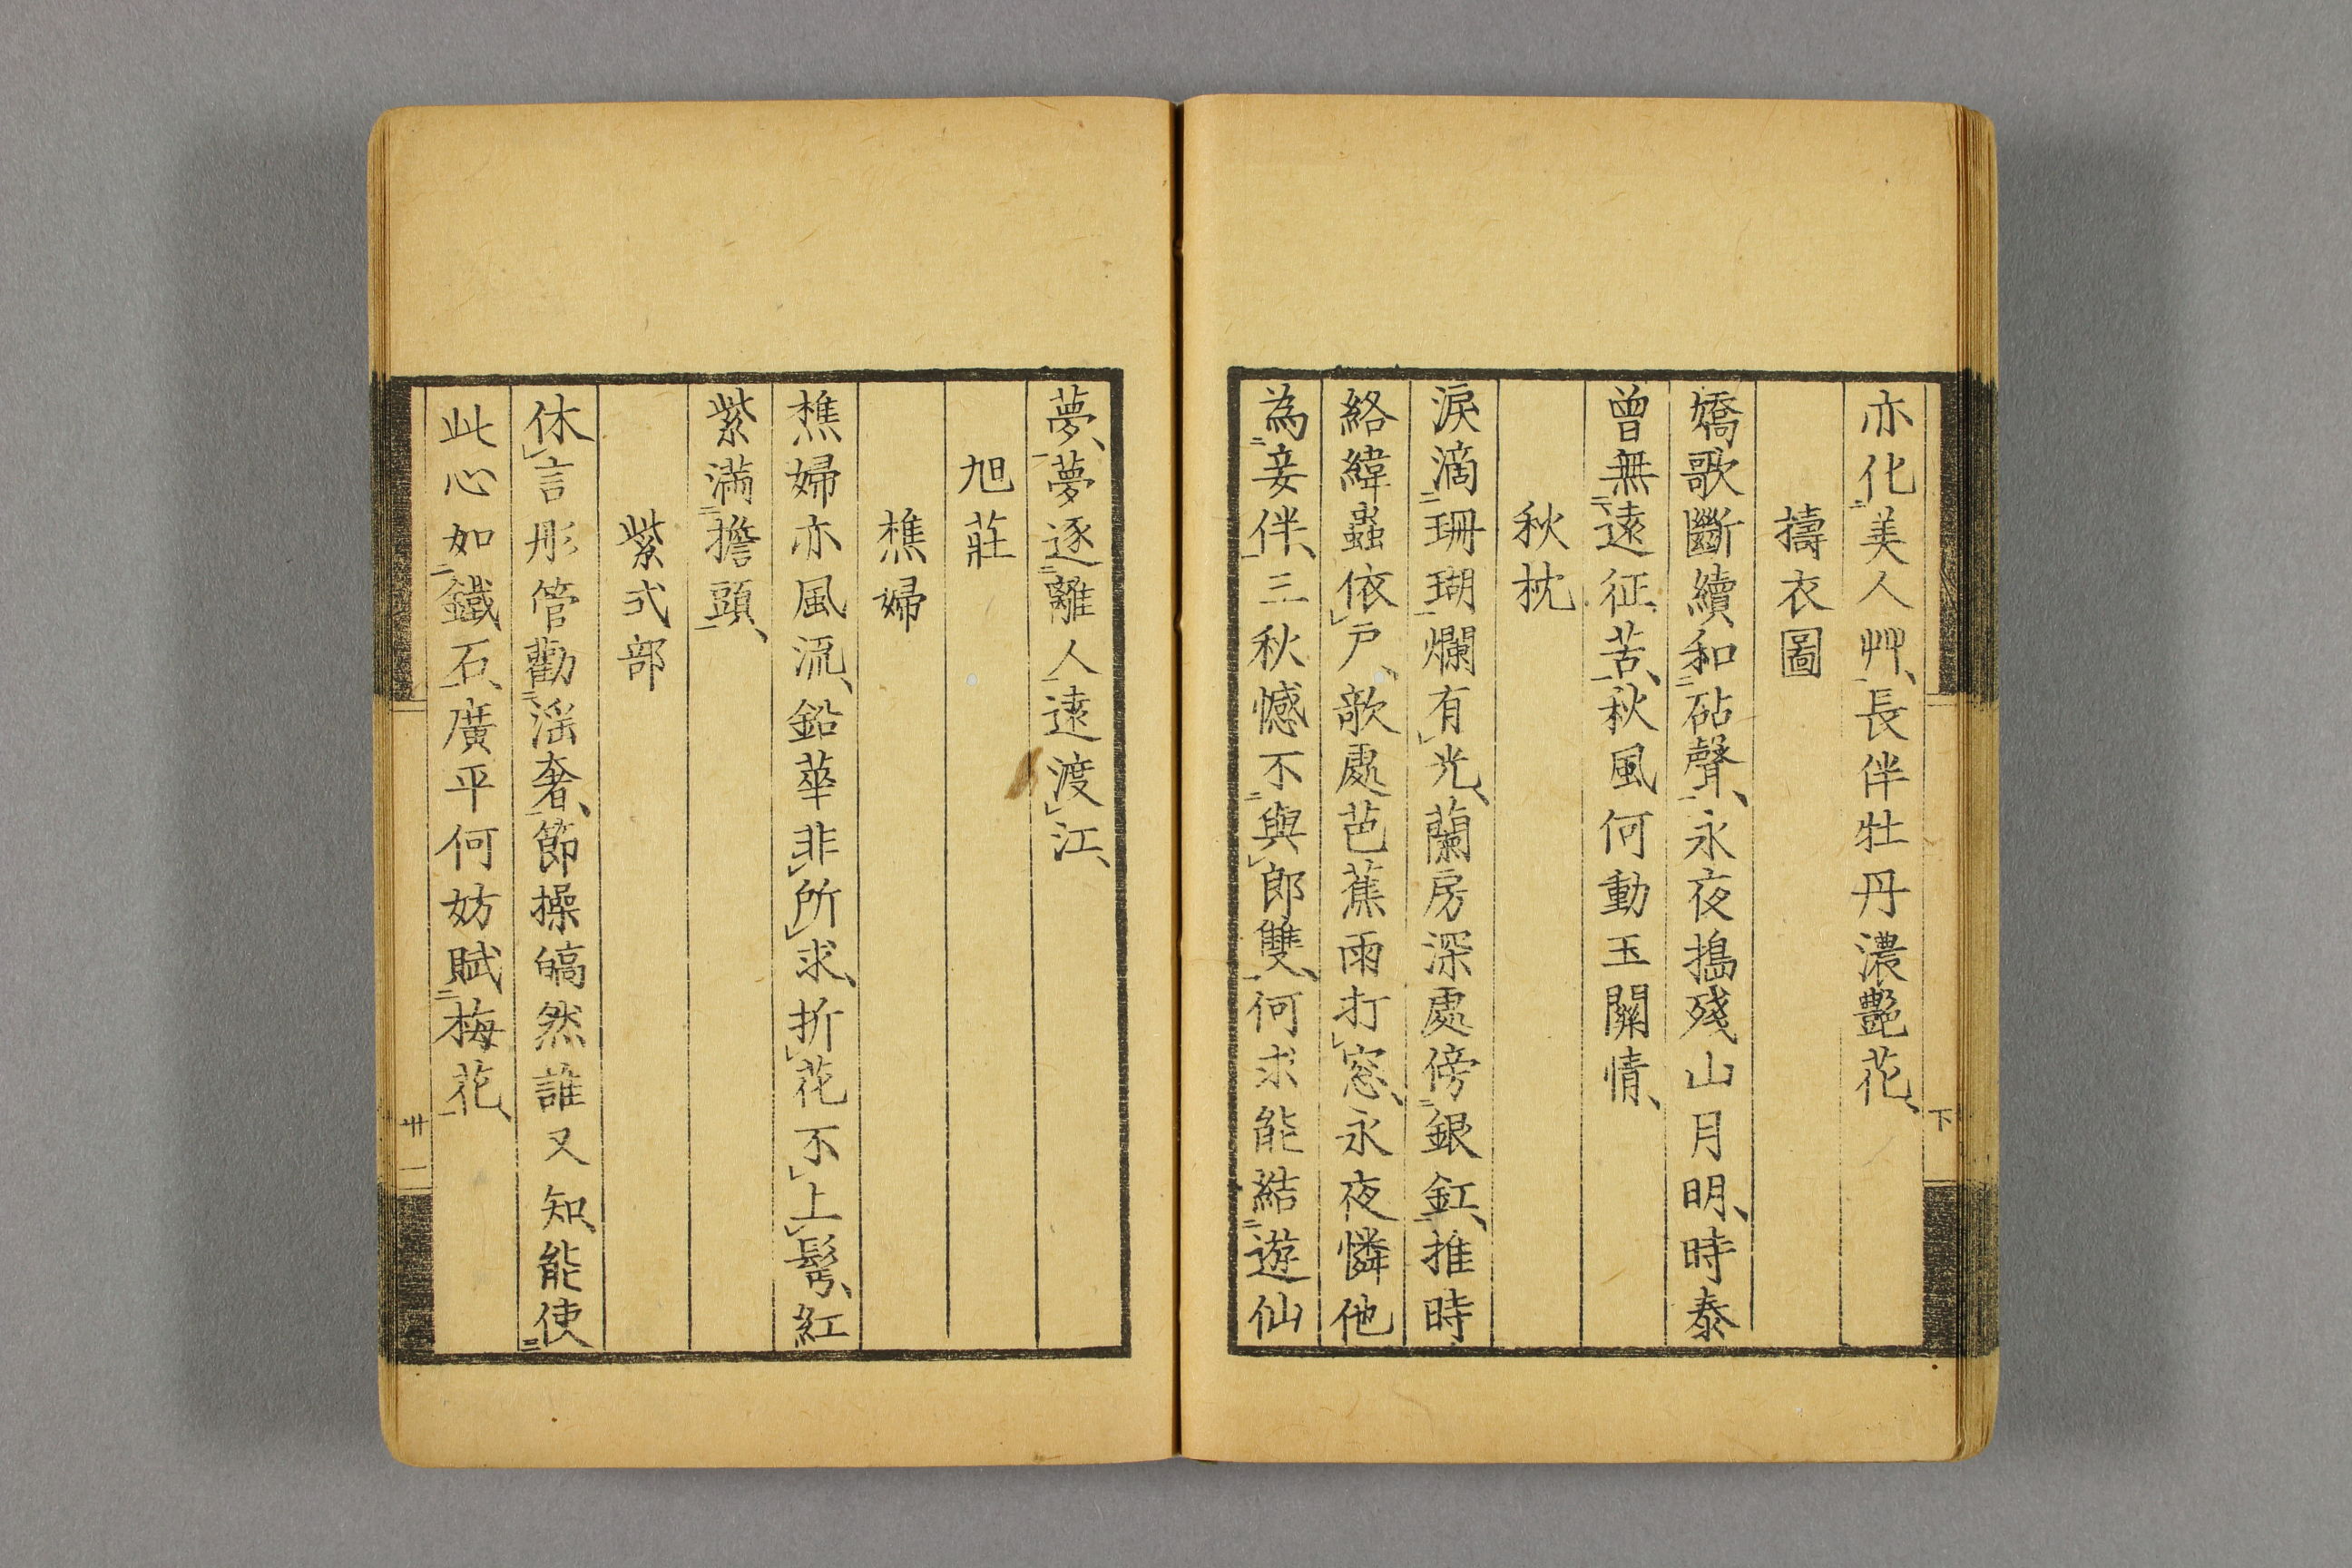 亦化㆓美人艸㆒、長伴牡丹濃艷花、
擣衣圖
嬌歌斷續和㆓砧聲㆒、永夜搗殘山月明、時泰
曾無㆓遠征苦㆒、秋風何動玉關情、
秋枕
淚滴㆓珊瑚㆒爛有㆑光、蘭房深處傍㆓銀釭㆒、推時
絡緯蟲依㆑戶、欹處芭蕉雨打㆑窓、永夜憐他
為㆓妾伴㆒、三秋憾不㆓與㆑郎雙㆒、何求能結㆓遊仙
夢㆒、夢逐㆓離人㆒遠渡㆑江、
旭莊
樵婦
樵婦亦風流、鉛華非㆑所㆑求、折㆑花不㆑上㆑髩、紅
紫滿㆓擔頭㆒、
紫式部
休㆑言彤管勸㆓滛奢㆒、節操皜然誰又知、能使㆓
此心如㆓鐵石㆒、廣平何妨賦㆓梅花㆒、
下
卅一